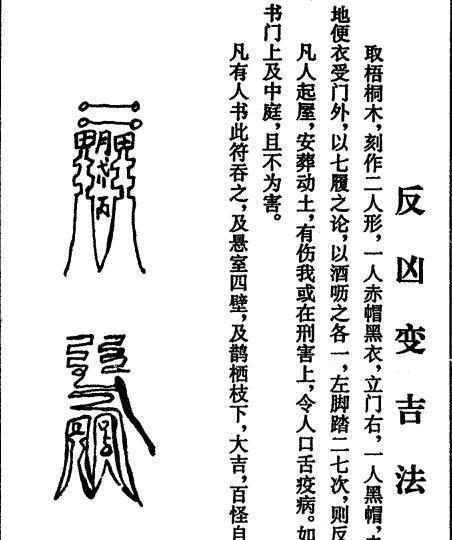 反凶变吉法
取梧桐木，刻作二人形，一人赤帽黑衣，立门右，一人黑帽，
地便衣受门外，以七履之论，以酒呖之各一，左脚踏二七次，则反
凡人起屋，安葬动土，有伤我或在刑害上，令人口舌疫病。如
书门上及中庭，且不为害。
凡有人书此符吞之，及悬室四壁，及鹊栖枝下，大吉，百怪自